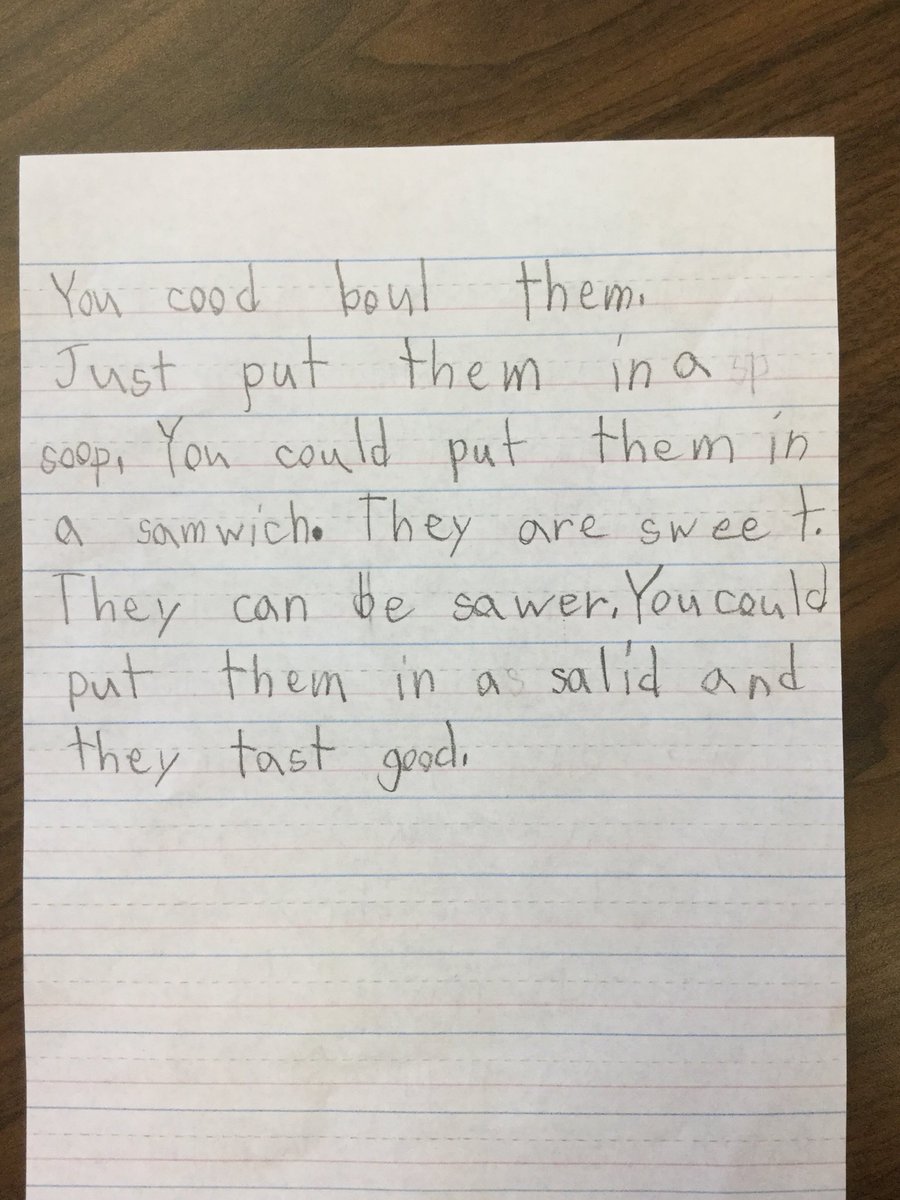 You cood boul them.
Just put them in a sp
soop. You could put them in
a samwich. They are sweet.
They can be sawer. You could
put them in as salid and
they tast good.